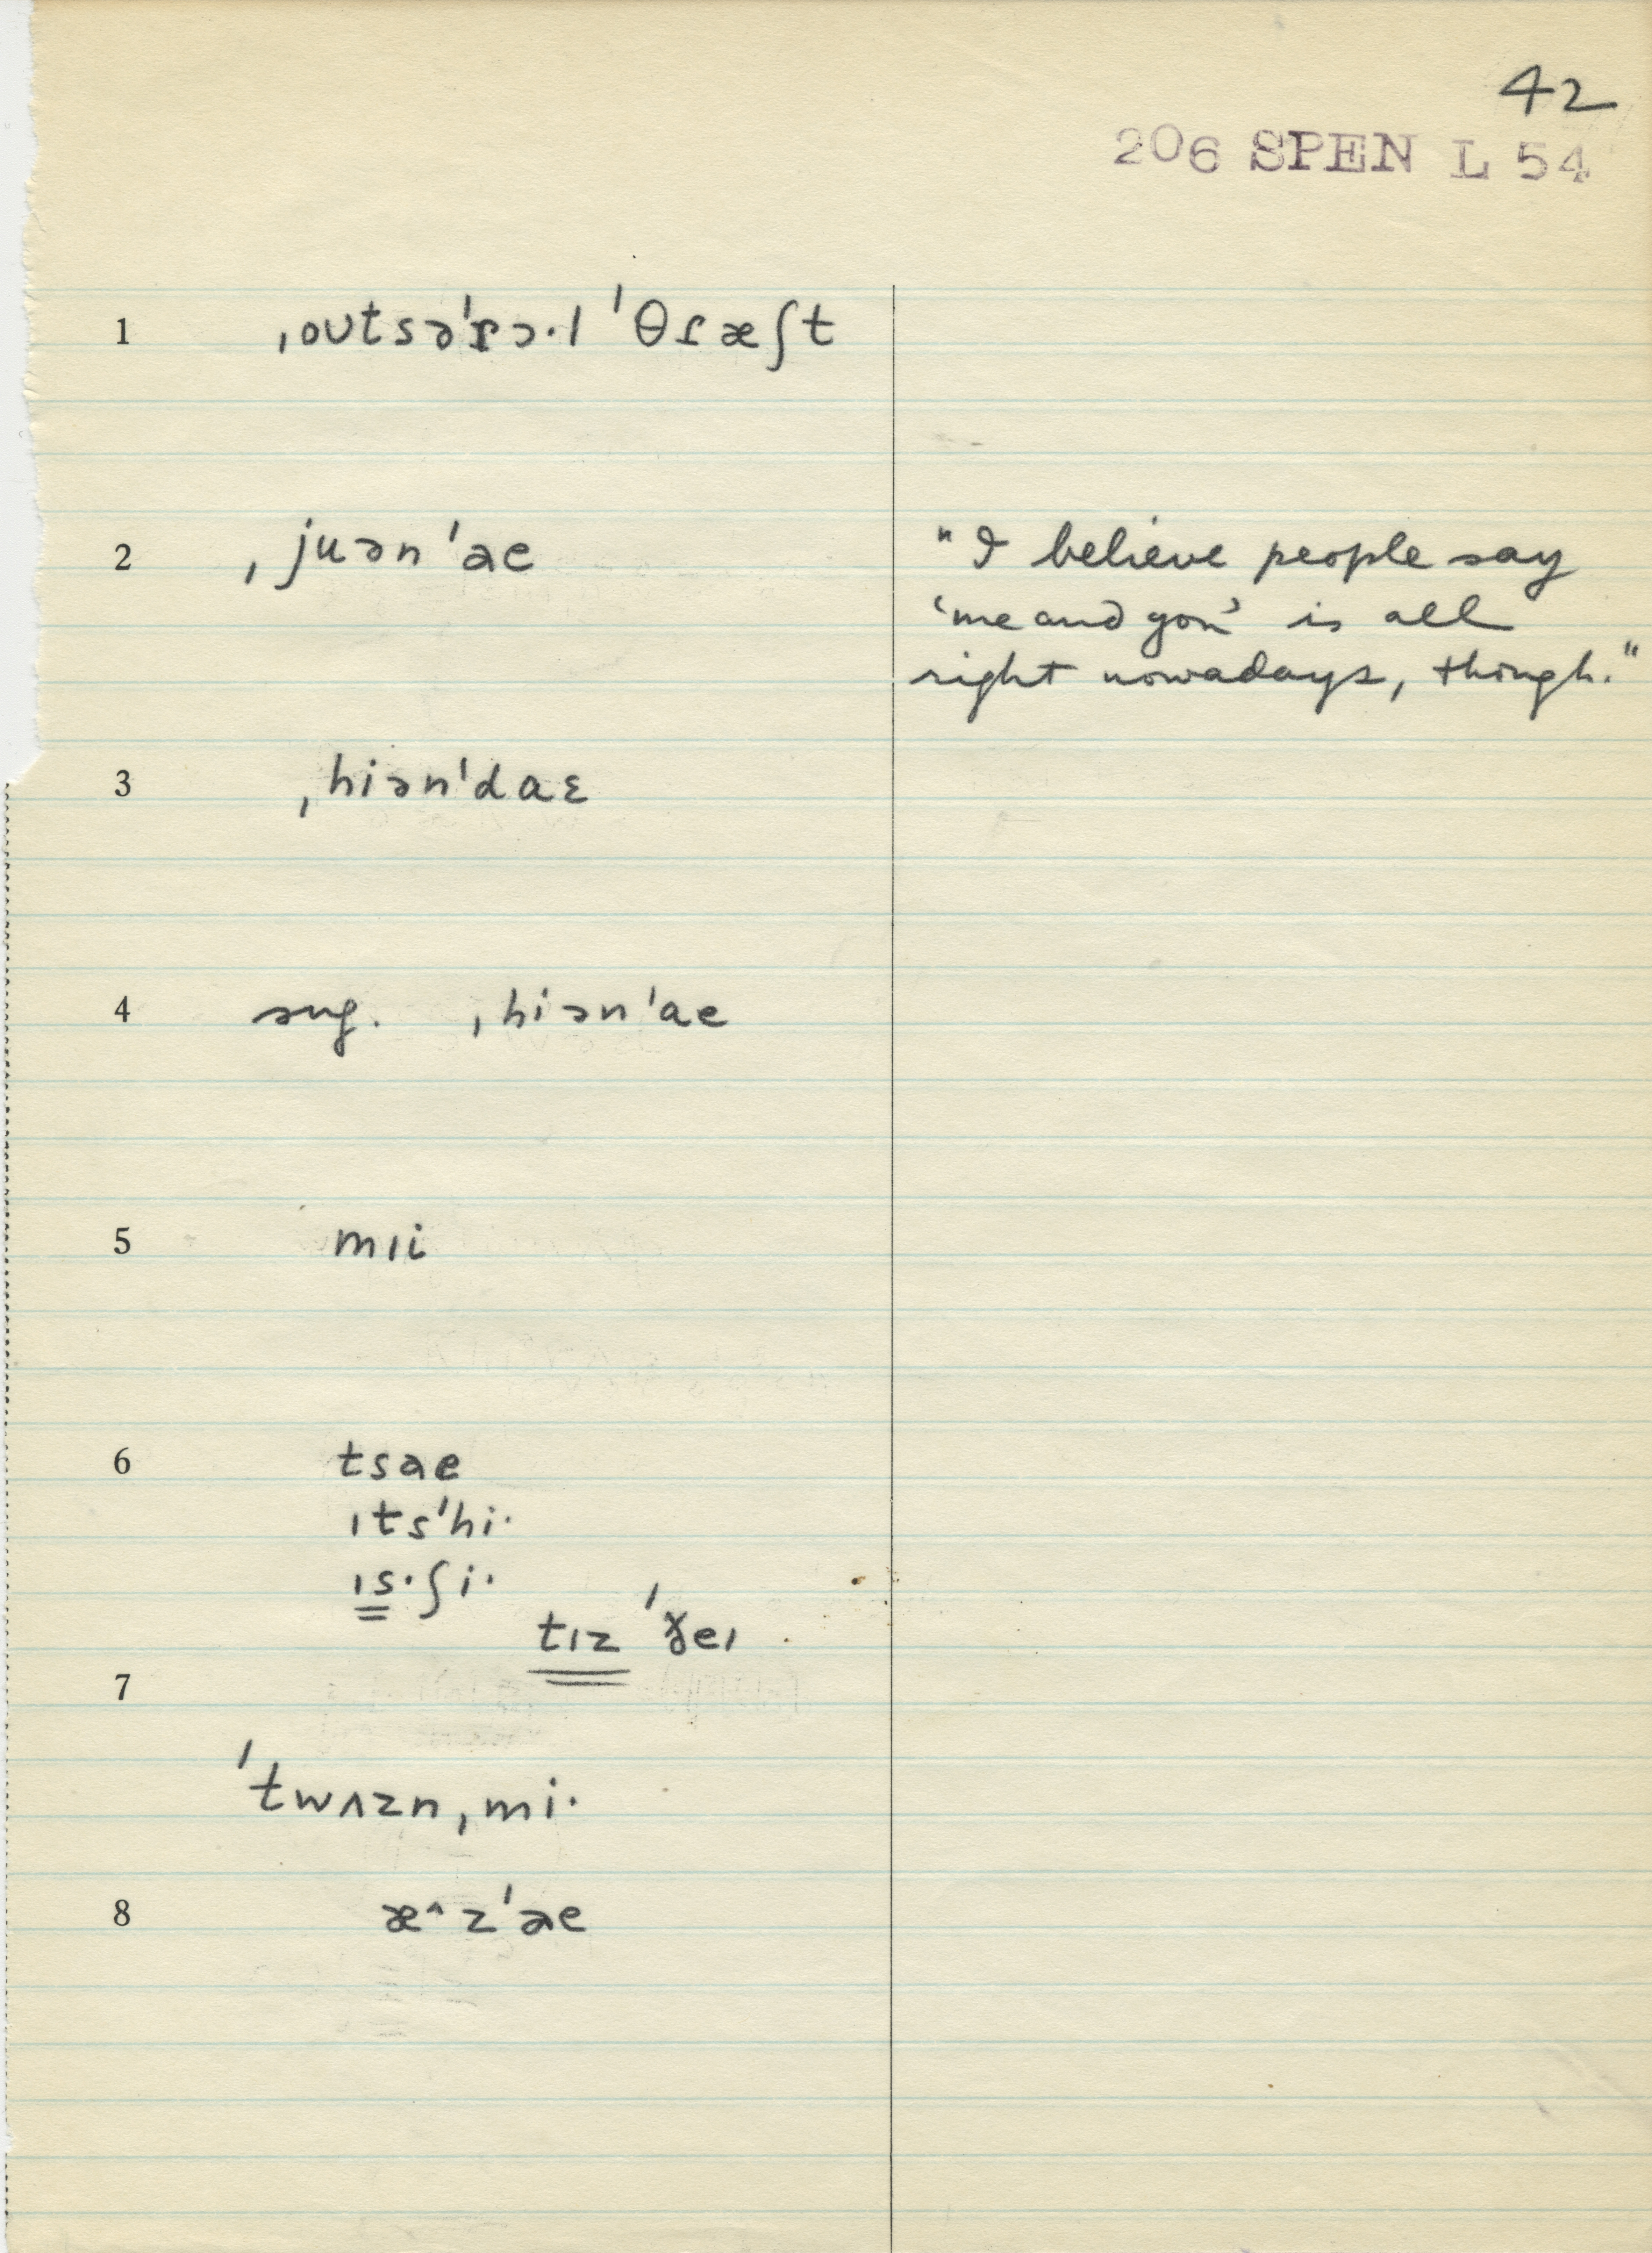 42
206 SPEN L 54
1 ˌoʊtsəˈɾɔ·l ˈθɾæʃt
2 ˌjuənˈae
"I believe people say
'me and you' is all
right nowadays, though."
3 ˌhiənˈdaɛ
4 sug. ˌhiənˈae
5 mɪi
6 tsae
ɪtsˈhi·
ɪs·ʃi·
tɪz ˈðeɪ
7
ˈtwʌznˌmi·
8 æ^zˈae